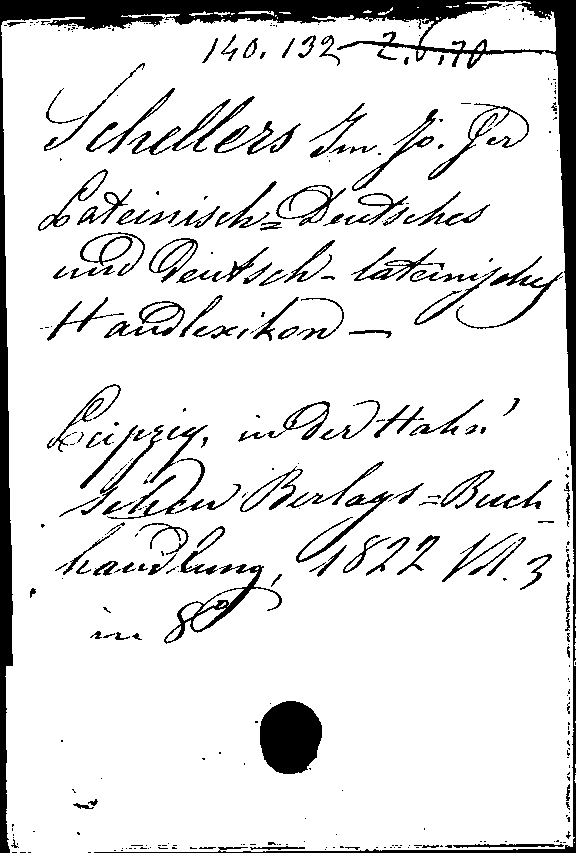 140.132 2.6.70
Schellers Im. Jo. Ger
Lateinisch=Deutsches
und Deutsch-lateinisches
Handlexikon —
Leipzig, in der Hahn'
schen Berlags=Buch
handlung, 1822 Vol. 3
in 8º